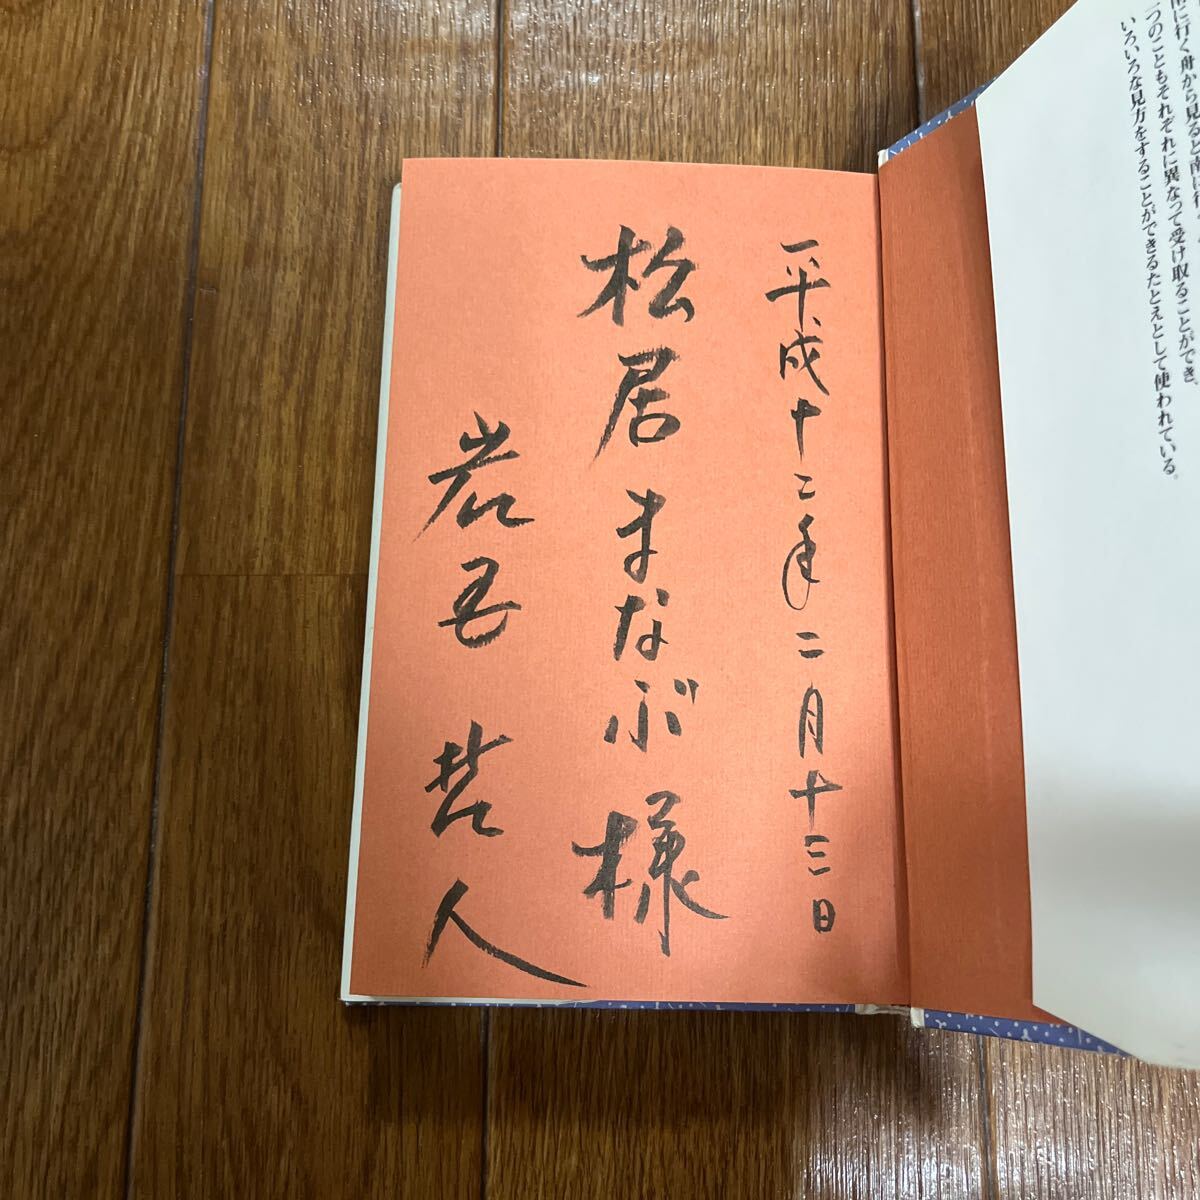 に行く舟から見ると南に行
つのこともそれぞれに異なって受け取ることができ、
いろいろな見方をすることができるたとえとして使われている。
平成十二年二月十三日
松居まなぶ様
岩 哲人